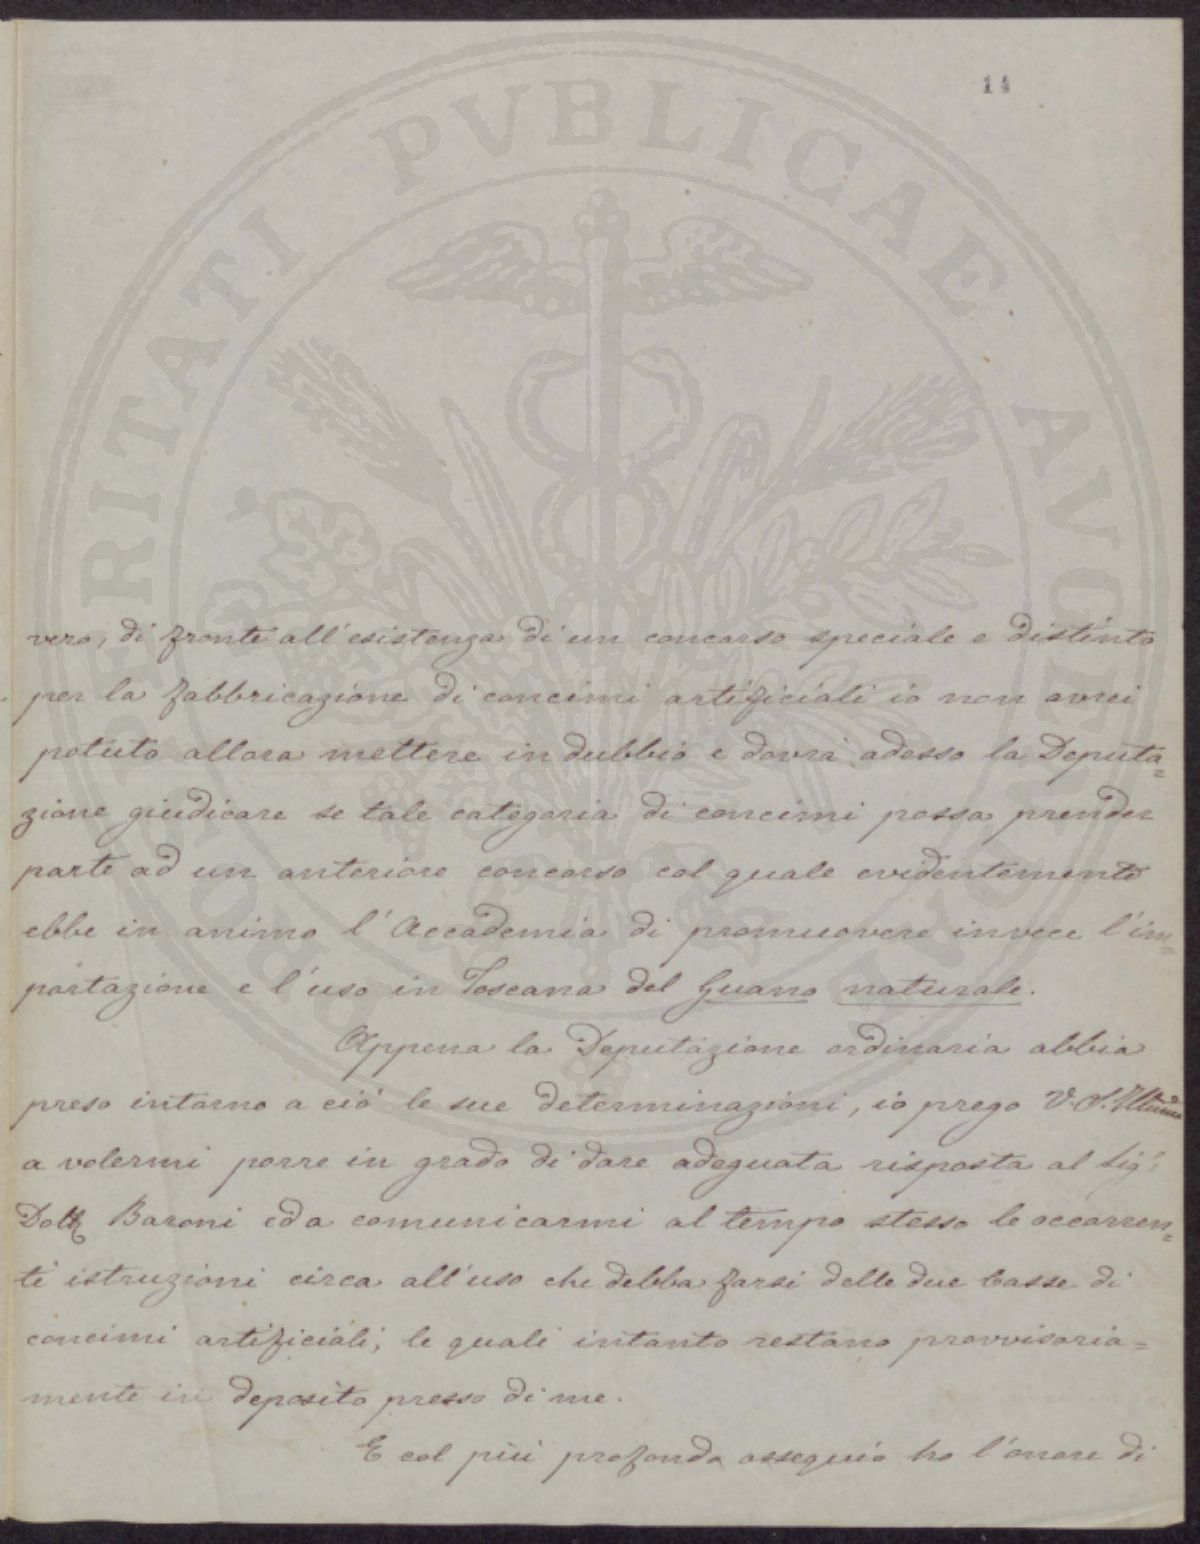 14
PROSPERITATI PVBLICAE AVGENDAE
vero, di fronte all'esistenza di un concorso speciale e distinto
per la fabbricazione di concimi artificiali io non avrei
potuto allora mettere in dubbio e dovrà adesso la Deputa=
zione giudicare se tale categoria di concimi possa prender
parte ad un anteriore concorso col quale evidentemente
ebbe in animo l'Accademia di promuovere invece l'im=
portazione e l'uso in Toscana del Guano naturale.
Appena la Deputazione ordinaria abbia
preso intorno a ciò le sue determinazioni, io prego V. S.
a volermi porre in grado di dare adeguata risposta al Sig.r
Dott. Baroni ed a comunicarmi al tempo stesso le occorren=
ti istruzioni circa all'uso che debba farsi delle due Casse di
concimi artificiali; le quali intanto restano provvisoria=
mente in deposito presso di me.
E col più profondo ossequio ho l'onore di